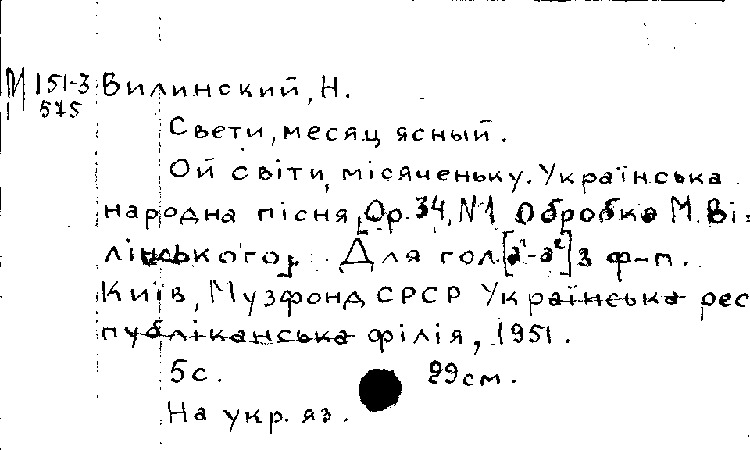 М 151-3 Вилинский, Н.
1 575
Свети, месяц ясный.
Ой світи, місяченьку. Українська
народна пісня, Ор. 34, N1 Обробка М. Ві-
лінського, Для гол. [a¹-a²] з ф-п.
Київ, Музфонд СРСР Українська рес
публіканська філія, 1951.
5с. 29см.
На укр. яз.